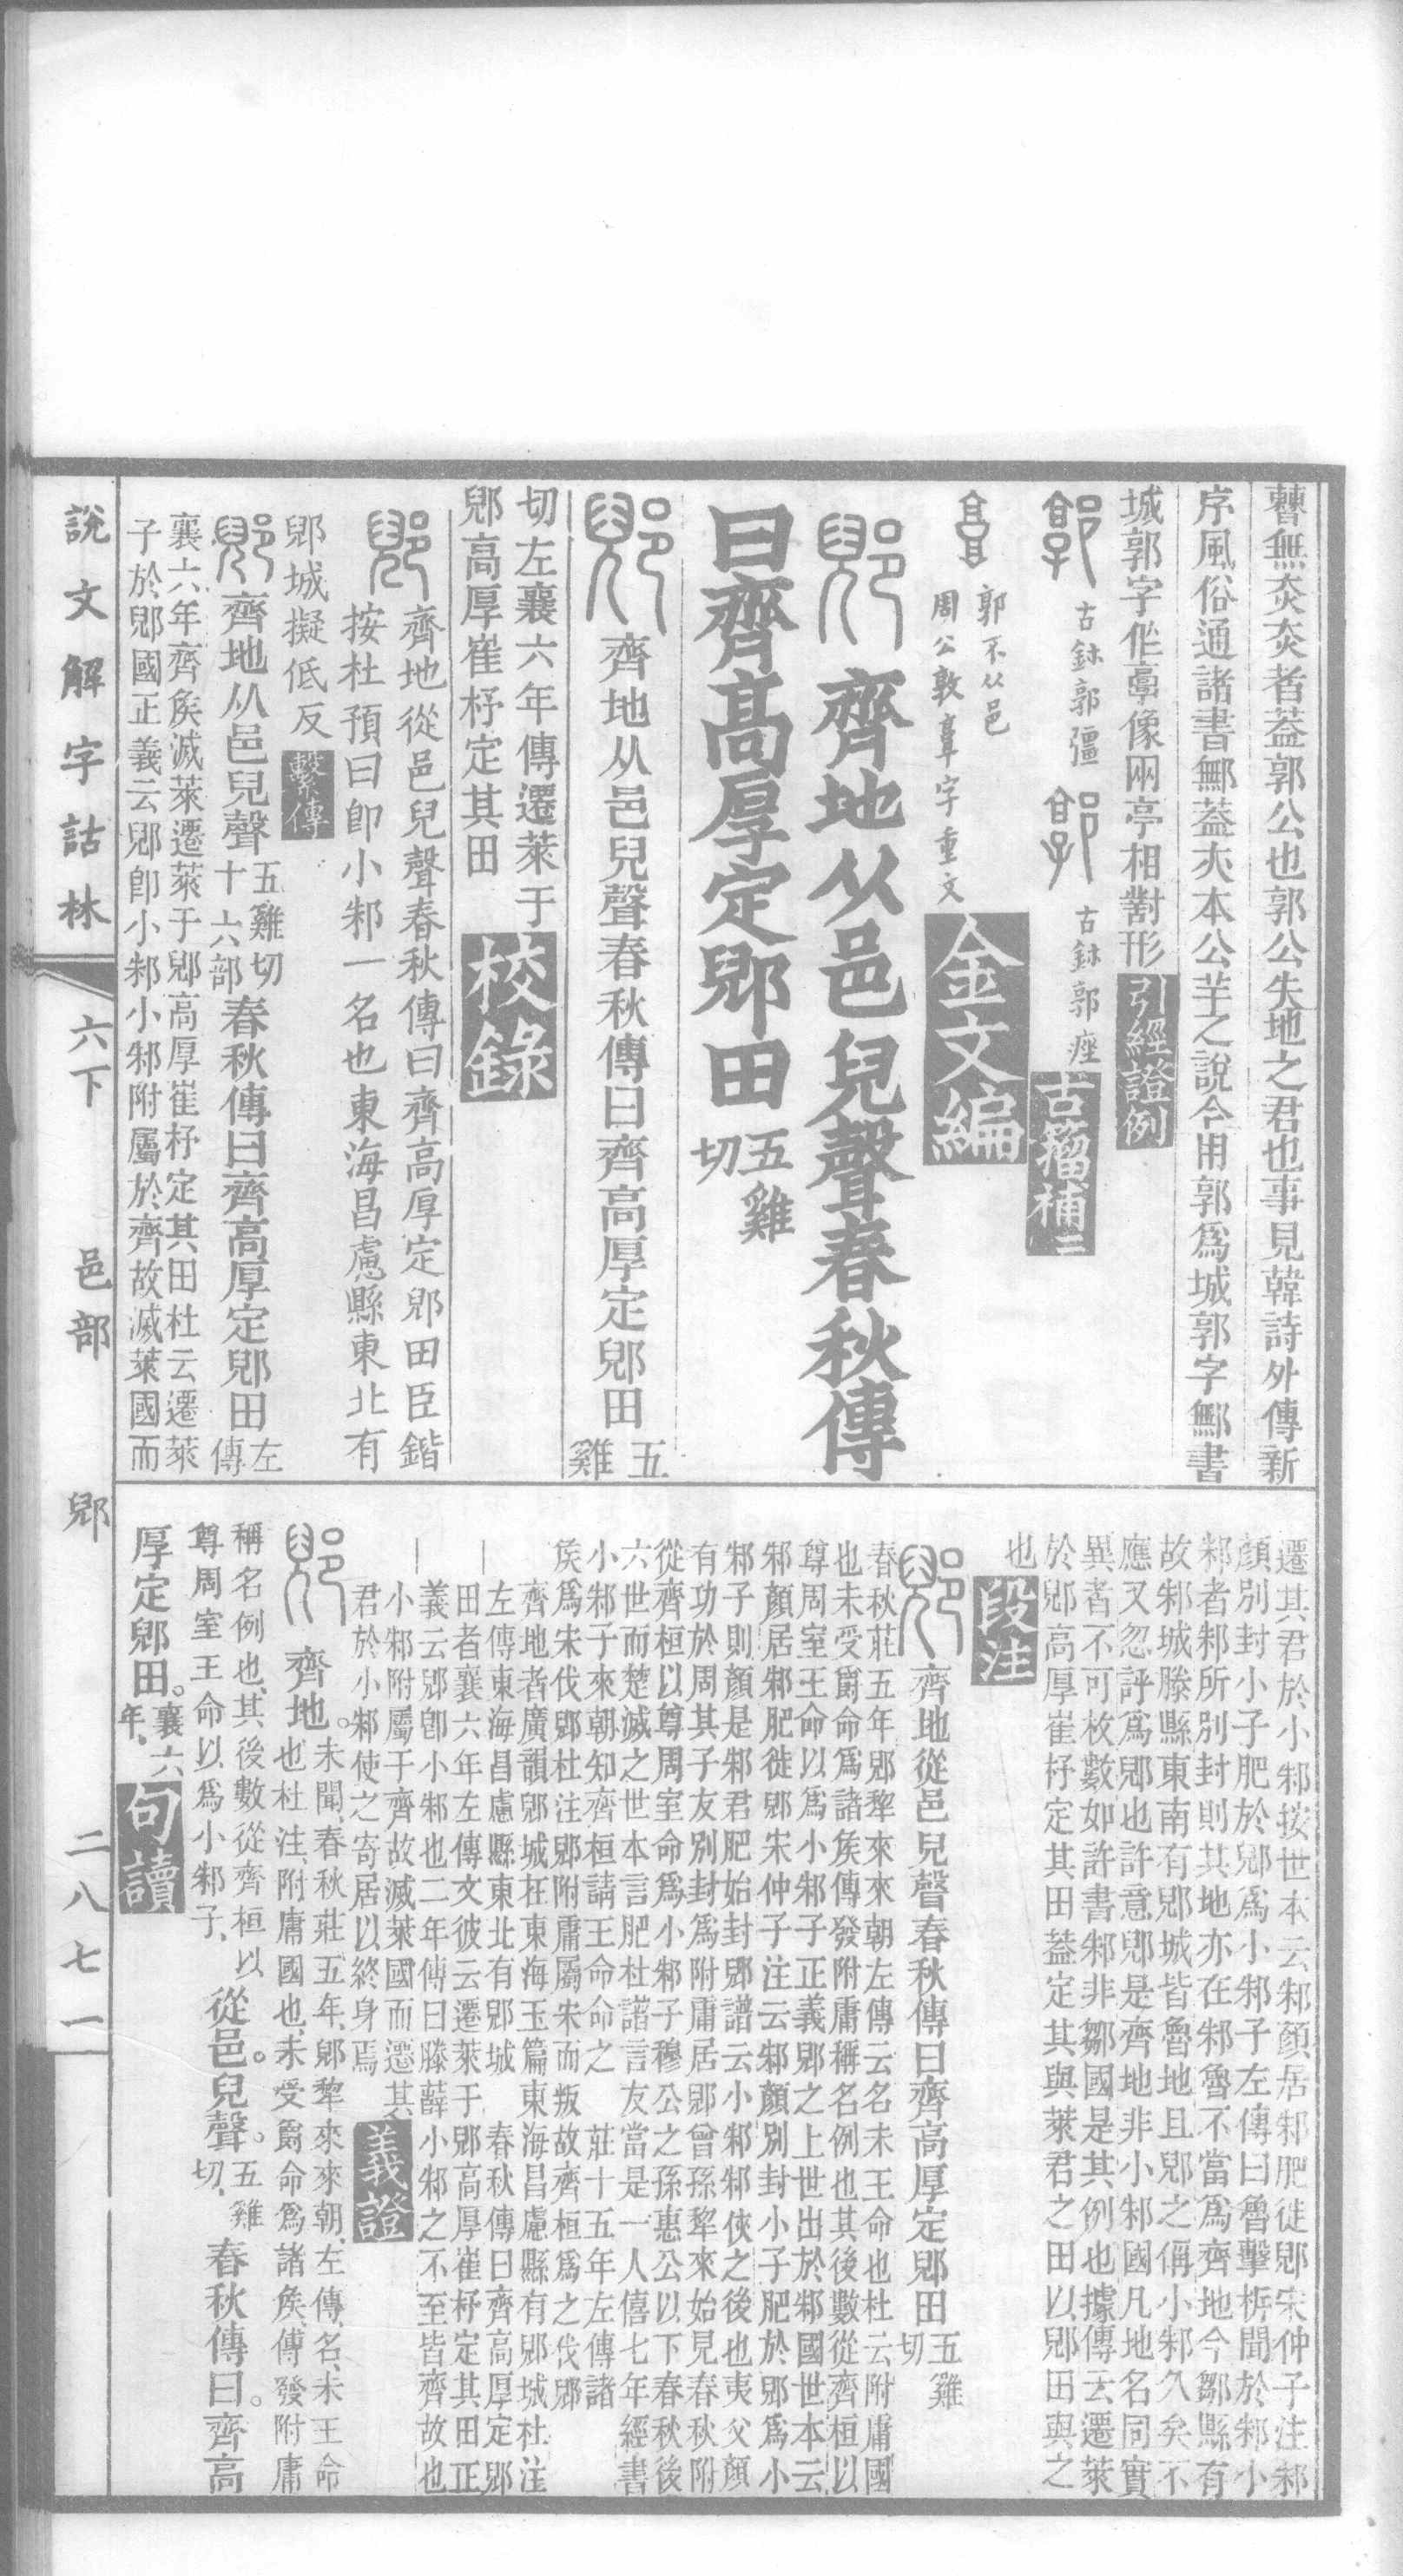 瞽無炎炎者蓋郭公也郭公失地之君也事見韓詩外傳新
序風俗通諸書鄦蓋夾本公羊之說今用郭爲城郭字鄦書
城郭字作𩫏像兩亭相對形引經證例
古鉢郭彊
古鉢郭痤
古籀補二
郭不从邑
周公敦𩫏字重文
金文編
郳齊地从邑兒聲春秋傳
曰齊高厚定郳田五雞
切
郳齊地从邑兒聲春秋傳曰齊高厚定郳田五
雞
切左襄六年傳遷萊于
郳高厚崔杼定其田校錄
郳齊地從邑兒聲春秋傳曰齊高厚定郳田臣鍇
按杜預曰卽小邾一名也東海昌慮縣東北有
郳城擬低反繫傳
郳齊地从邑兒聲五雞切
十六部春秋傳曰齊高厚定郳田左
傳
襄六年齊矦滅萊遷萊于郳高厚崔杼定其田杜云遷萊
子於郳國正義云郳卽小邾小邾附屬於齊故滅萊國而
遷其君於小邾按世本云邾顏居邾肥徙郳宋仲子注邾
顏別封小子肥於郳爲小邾子左傳曰魯擊柝聞於邾小
邾者邾所別封則其地亦在邾魯不當爲齊地今鄒縣有
故邾城滕縣東南有郳城皆魯地且郳之偁小邾久矣不
應又忽評爲郳也許意郳是齊地非小邾國凡地名同實
異者不可枚數如許書邾非鄒國是其例也據傳云遷萊
於郳高厚崔杼定其田葢定其與萊君之田以郳田與之
也段注
郳齊地從邑兒聲春秋傳曰齊高厚定郳田五雞
切
春秋莊五年郳犂來來朝左傳云名未王命也杜云附庸國
也未受爵命爲諸矦傳發附庸稱名例也其後數從齊桓以
尊周室王命以爲小邾子正義郳之上世出於邾國世本云
邾顏居邾肥徙郳宋仲子注云邾顏別封小子肥於郳爲小
邾子則顏是邾君肥始封郳譜云小邾邾俠之後也夷父顏
有功於周其子友別封爲附庸居郳曾孫犂來始見春秋附
從齊桓以尊周室命爲小邾子穆公之孫惠公以下春秋後
六世而楚滅之世本言肥杜譜言友當是一人僖七年經書
小邾子來朝知齊桓請王命命之　莊十五年左傳諸
矦爲宋伐郳杜注郳附庸屬宋而叛故齊桓爲之伐郳
齊地者廣韻郳城在東海玉篇東海昌慮縣有郳城杜注
左傳東海昌慮縣東北有郳城　春秋傳曰齊高厚定郳
田者襄六年左傳文彼云遷萊于郳高厚崔杼定其田正
義云郳卽小邾也二年傳曰滕薛小邾之不至皆齊故也
小邾附屬于齊故滅萊國而遷其
君於小邾使之寄居以終身焉義證
郳齊地。未聞、春秋莊五年、郳犂來來朝、左傳、名、未王命
也杜注、附庸國也、未受爵命爲諸矦傳發附庸
稱名例也、其後數從齊桓以
尊周室王命以爲小邾子、從邑。兒聲。五雞
切、春秋傳曰。齊高
厚定郳田。襄六
年、句讀
說文解字詁林　六下　邑部　郳　二八七一